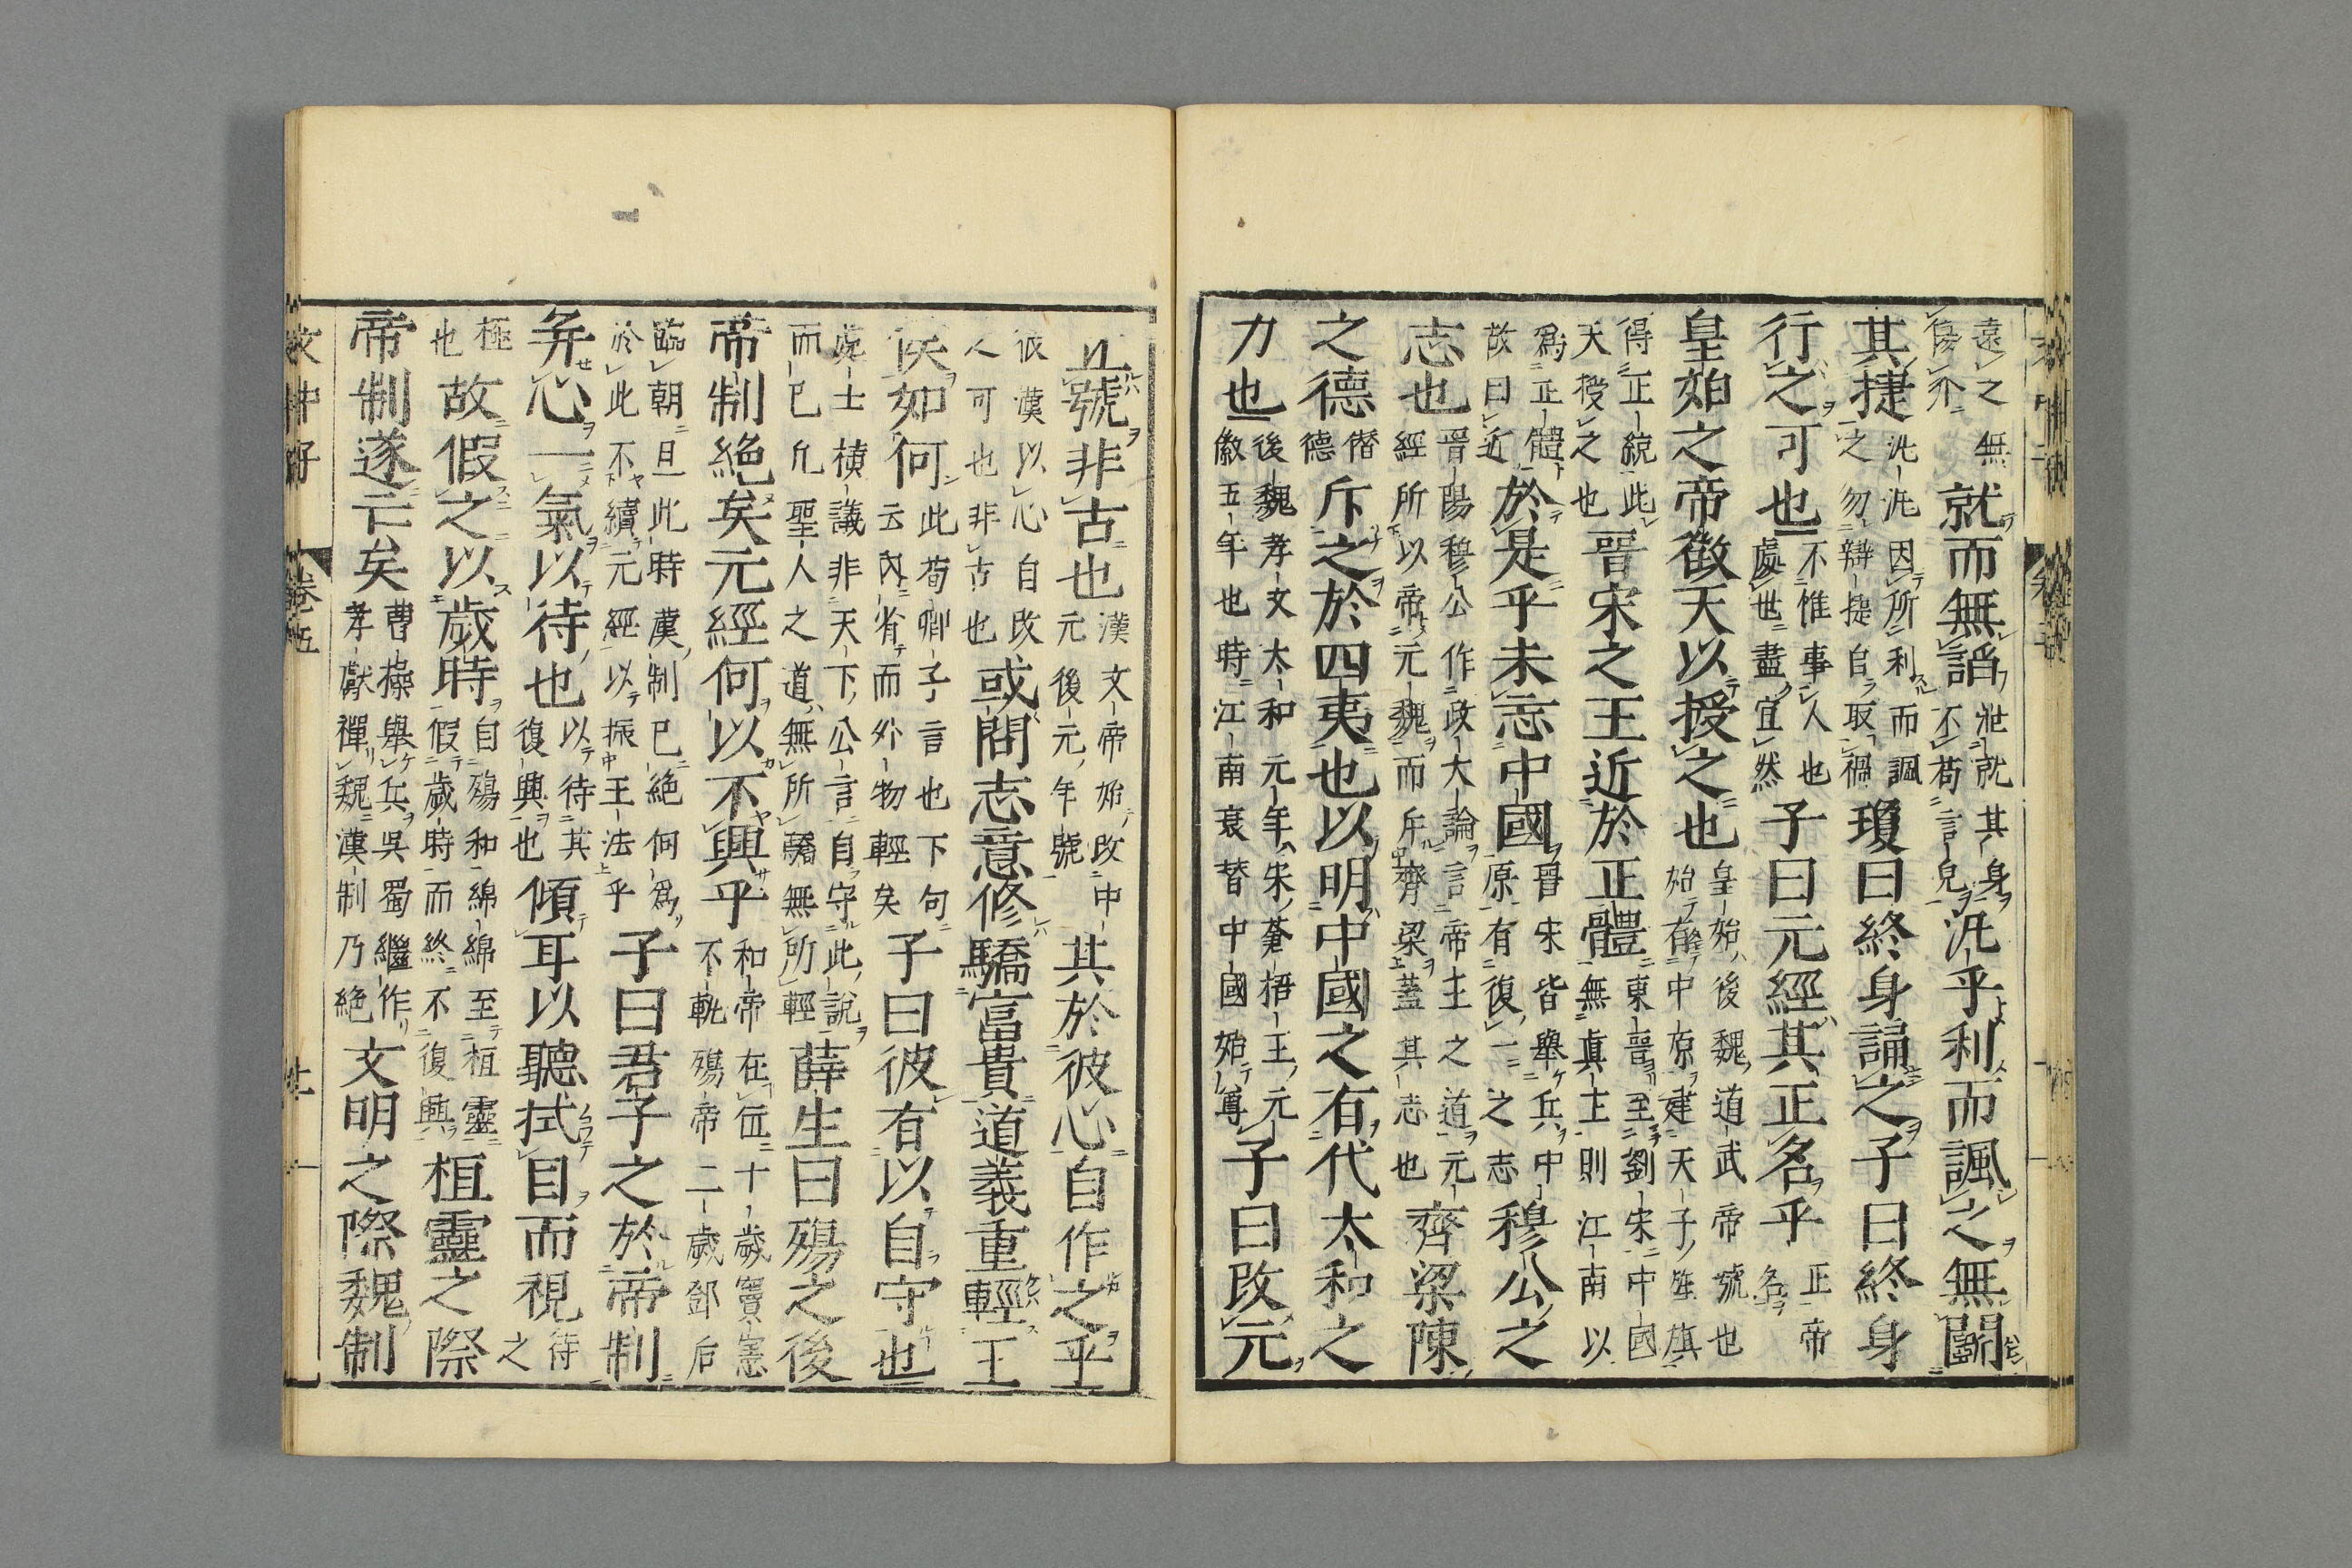 遠之無
傷介
就而無諂
汎就其身
不苟言皃
汎乎利而諷之無鬭
其捷
汎汎因所利而諷
之勿辯捷自取禍
瓊曰終身誦之子曰終身
行之可也
不惟事人也
處世盡宜然
子曰元經其正名乎
正帝
名
皇始之帝徵天以授之也
皇始後魏道武帝號也
始有中原建天子旌旗
得正統此
天授之也
晋宋之王近於正體
東晋至劉宋中國
無真主則江南以
爲正體
故曰近
於是乎未忘中國
晋宋皆舉兵中
原有復一之志
穆公之
志也
晋陽穆公作政大論言帝王之道元
經所以帝元魏而斥齊梁蓋其志也
齊梁陳
之德
僭
德
斥之於四夷也以明中國之有代太和之
力也
後魏孝文太和元年宋蒼梧王元
徽五年也時江南衰替中國始尊
子曰改元
立號非古也
漢文帝始改中
元後元年號
其於彼心自作之乎
彼漢以心自改
人可也非古也
或問志意修驕富貴道義重輕王
侯如何
此荀卿子言也下句
云內省而外物輕矣
子曰彼有以自守也
處士橫議非天下公言自守此說
而已凡聖人之道無所驕無所輕
薛生曰殤之後
帝制絕矣元經何以不興乎
和帝在位十歲竇憲
不軌殤帝二歲鄧后
臨朝且此時漢制已絕何爲
於此不續元經以振王法乎
子曰君子之於帝制
弁心一氣以待也
以待其
復興也
傾耳以聽拭目而視
待
之
極
也
故假之以歲時
自殤和綿綿至桓靈
假歲時而終不復興
桓靈之際
帝制遂亡矣
曹操舉兵吳蜀繼作
孝獻禪魏漢制乃絕
文明之際魏制
文中子
卷五